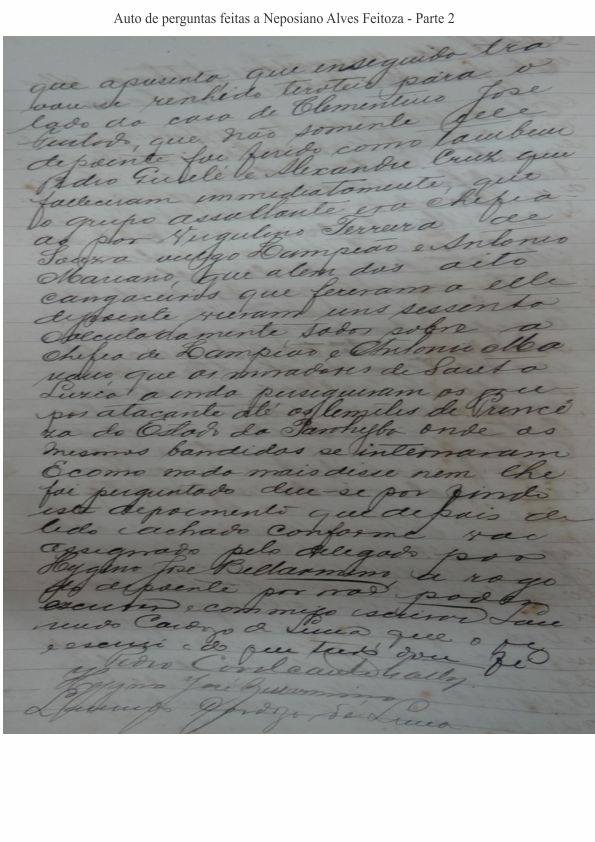 Auto de perguntas feitas a Neposiano Alves Feitoza - Parte 2
que aposento que enseguida tra
vou-se renhido teroteio para o
lado da casa de Clementino José
que não somente elle
depoente foi ferido como tambem
Pedro e Alexandre Cruz que
faleceram immediatamente, que
o grupo assaltante era chefia-
do por Virgulino Ferreira de
Souza vulgo Lampeão e Antonio
Mariano, que alem dos oito
cangaceiros que fereram a elle
depoente vieram uns sessenta
calculadamente todos sobre a
chefia de Lampeão e Antonio Ma
riano que os moradores de Santa
Luzia ainda persiguiram os gru
pos atacante até os lemites de Princê
za do Estado da Parahyba onde os
mesmos bandidos se internaram
E como nada mais disse nem lhe
foi perguntado deu-se por findo
este depoimento que depois de
lido e achado conforme vai
assignado pelo delegado por
Hygino José Bellarmino, a rogo
do depoente por não poder
escrever e commigo escrivão Lau
rindo Cardozo de Lima que o
e escrevi e do que tudo dou fé
Pedro Cavalcanti
Hygino José Bellarmino
Laurindo Cardozo de Lima